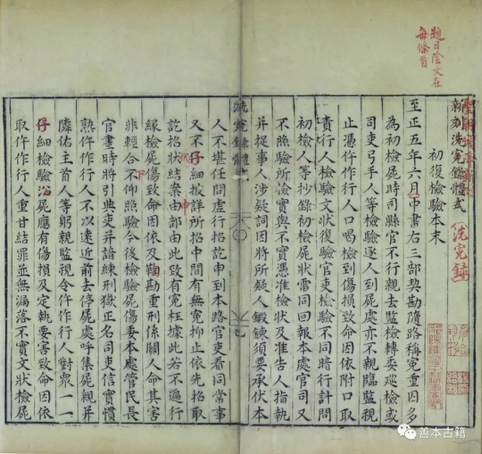 題曰陰文在
每條首
新刻洗冤錄體式
洗冤錄
初復檢驗本末
至正五年六月中書右三部契勘隨路稱冤重囚多
為初檢屍時司縣官不行親去監檢轉委巡檢或
司吏弓手人等檢驗逐人到屍處亦不親臨監視
止憑仵作行人口喝檢到傷損致命因依附口取
責行人檢驗文狀復驗官吏檢驗不同暗行計問
初檢人等抄錄初檢屍狀雷同回報本處官司又
不照驗所檢實與不實憑准檢狀及准告人指執
并捉事人涉疑詞因將所疑人鍛鍊須要承伏本
洗冤錄
人不堪任間虛行招訖申到本路官吏看同常事
又不仔細披詳所招中間有無冤抑止依先招取
訖招狀結案由部由此致有冤枉據此若不遍行
緣檢屍傷致命因依及鞫勘重刑係關人命其害
非輕合下仰照驗今後檢驗屍傷委本處管民長
官畫時將引典吏并諳練刑獄正名司吏信實慣
熟仵作行人不以遠近前去停屍處呼集屍親并
隣佑主首人等躬親監視令仵作行人對衆一一
仔細檢驗沿屍應有傷損及定執要害致命因依
取仵作行人重甘結罪並無漏落不實文狀檢屍
善本古籍